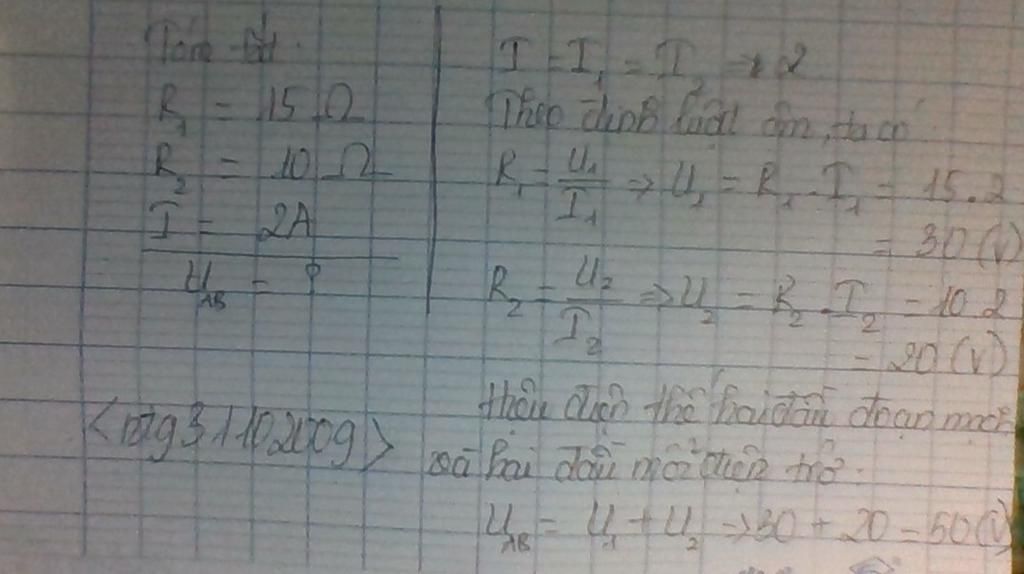 Tóm tắt.
R₁ = 15 Ω
R₂ = 10 Ω
I = 2A
U_AB = ?
I = I₁ = I₂ → 2
Theo định luật ôm, ta có
R₁ = U₁/I₁ ⇒ U₁ = R₁ . I₁ = 15.2
= 30 (V)
R₂ = U₂/I₂ ⇒ U₂ = R₂ . I₂ = 10.2
= 20 (V)
hiệu điện thế hai đầu đoạn mạch
và hai đầu mỗi điện trở.
U_AB = U₁ + U₂ → 30 + 20 = 50 (V)